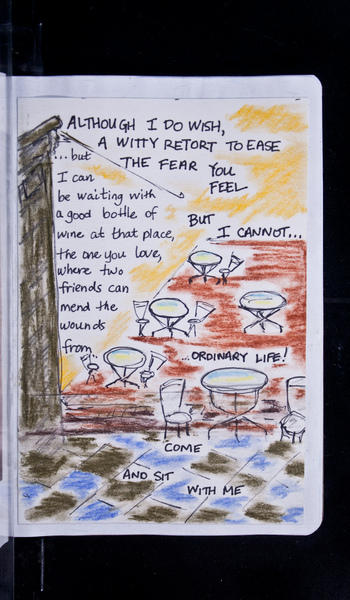 ALTHOUGH I DO WISH,
A WITTY RETORT TO EASE
THE FEAR YOU
FEEL
BUT
I CANNOT...
...but
I can
be waiting with
a good bottle of
wine at that place,
the one you love,
where two
friends can
mend the
wounds
from...
...ORDINARY LIFE!
COME
AND SIT
WITH ME